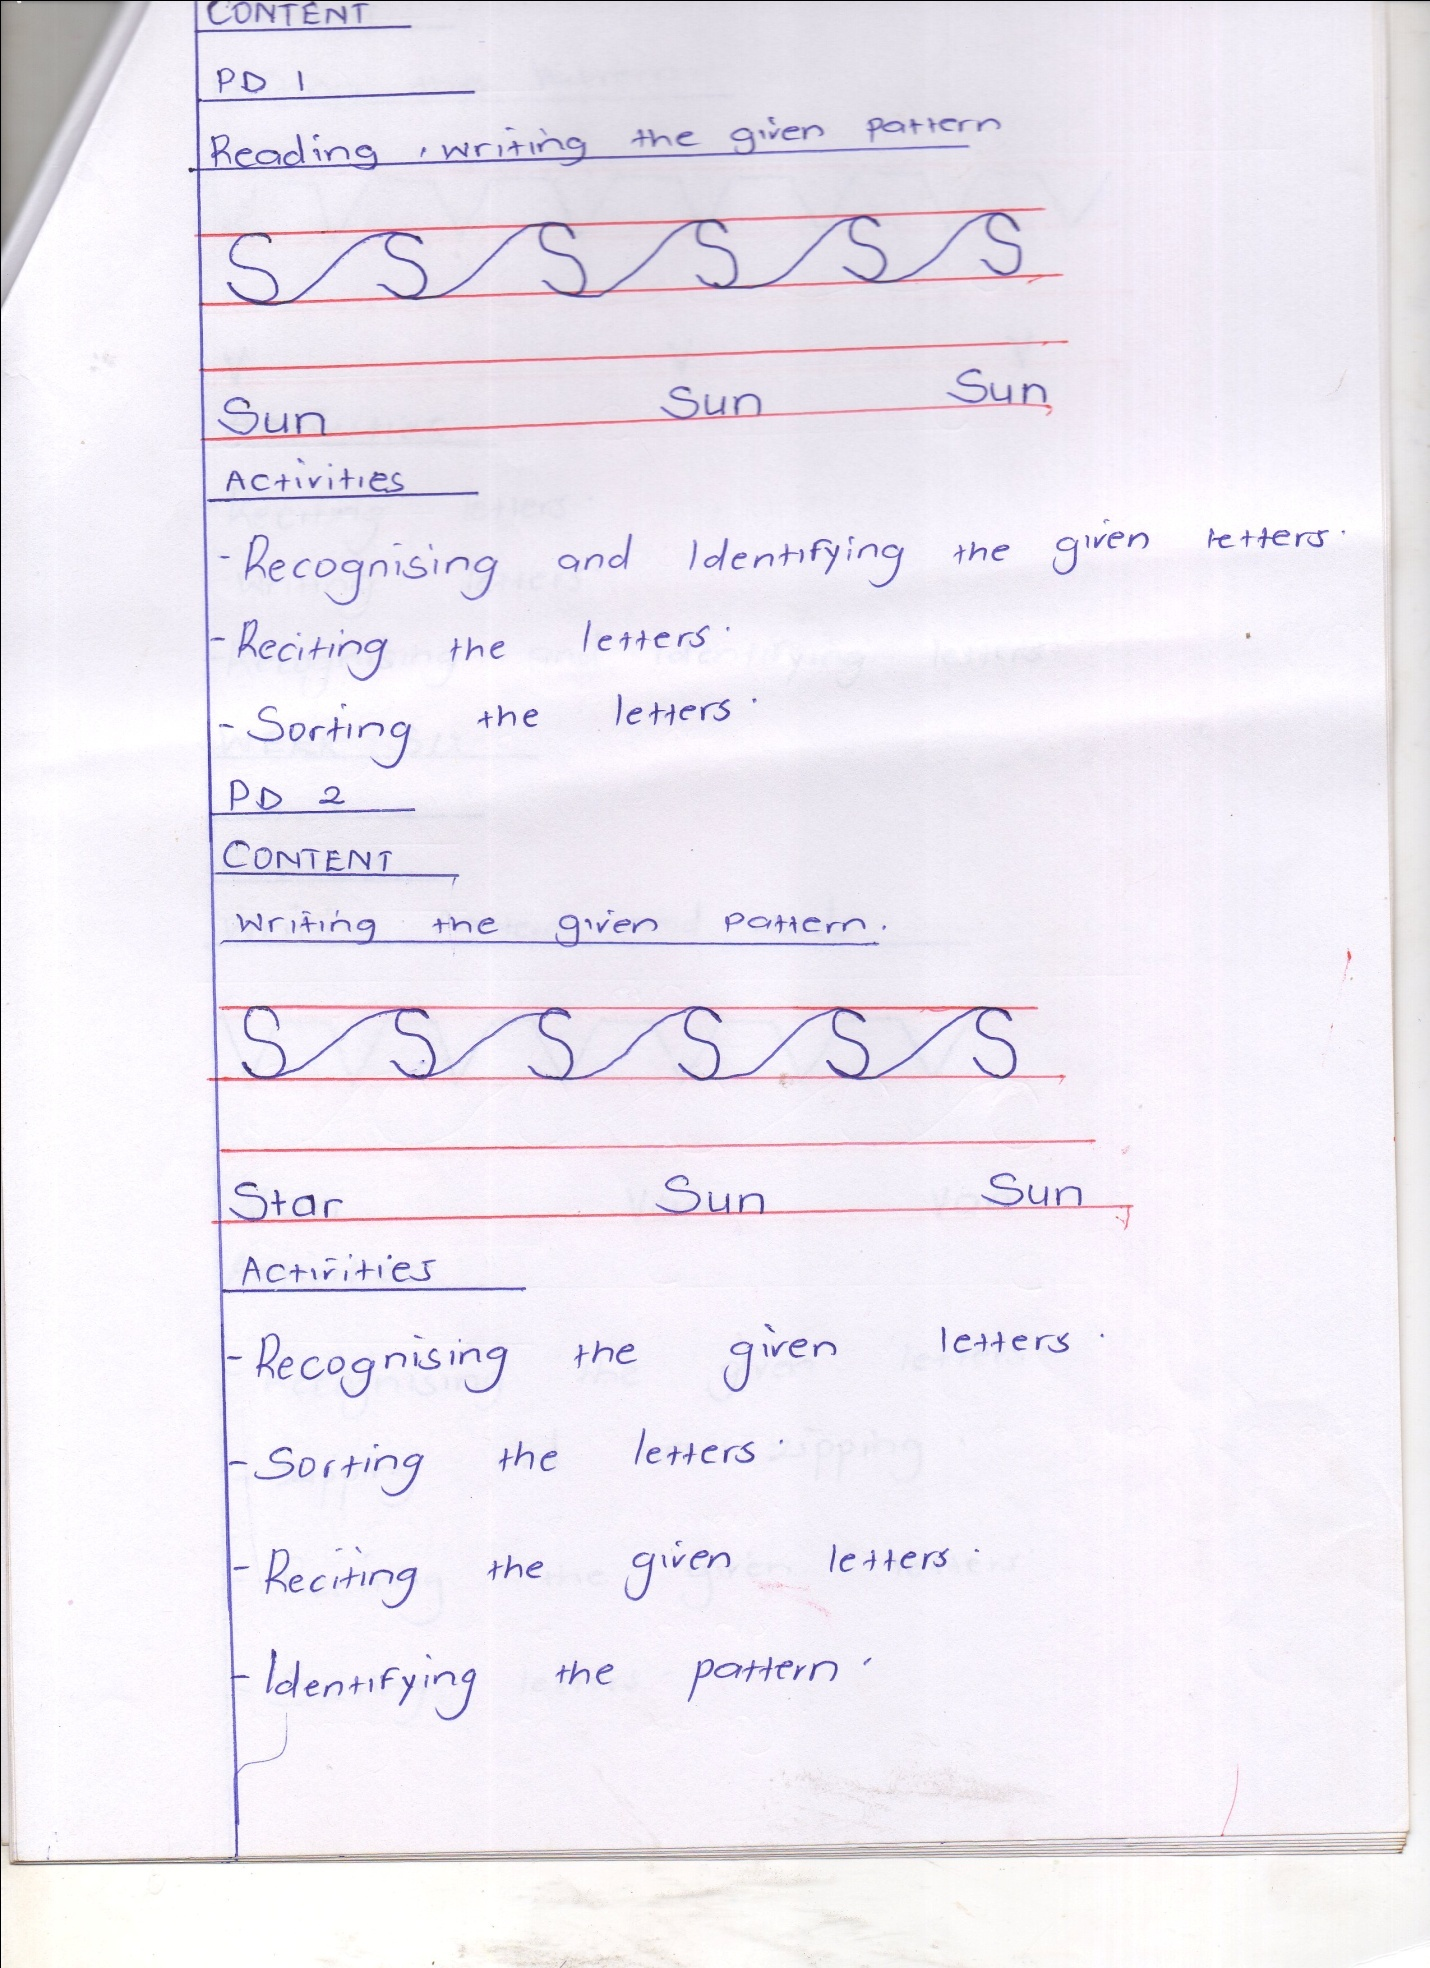 CONTENT
PD 1
Reading, writing the given pattern
S S S S S S
Sun Sun Sun
Activities
- Recognising and Identifying the given letters.
- Reciting the letters.
- Sorting the letters.
PD 2
CONTENT
Writing the given pattern.
S S S S S S
Star Sun Sun
Activities
- Recognising the given letters.
- Sorting the letters.
- Reciting the given letters.
- Identifying the pattern.